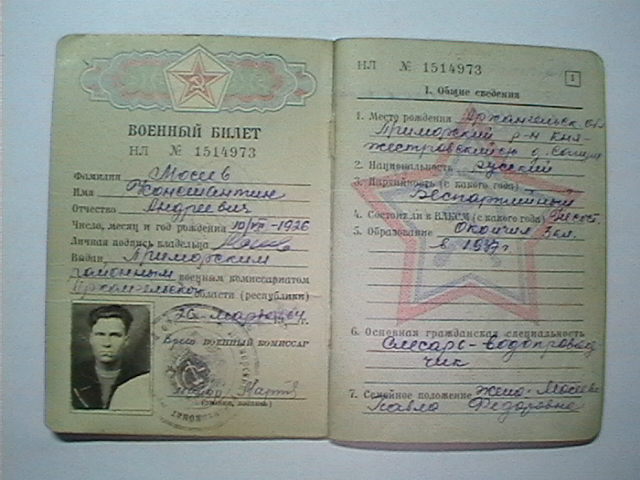 ВОЕННЫЙ БИЛЕТ
НЛ № 1514973
Фамилия Мосеев
Имя Константин
Отчество Андреевич
Число, месяц и год рождения 10/VII-1926
Личная подпись владельца
Выдан Приморским
районным военным комиссариатом
области (республики)
26 марта 64 г.
Врио военный комиссар
майор
НЛ № 1514973
1
I. Общие сведения
1. Место рождения Архангельск. обл
Приморский р-н Кня-
жестровский с/с д.
2. Национальность русский
3. Партийность (с какого года)
Беспартийный
4. Состоял ли в ВЛКСМ (с какого года)
5. Образование Окончил 3 кл.
в 1937 г
6. Основная гражданская специальность
Слесарь-водопровод
чик
7. Семейное положение жена-Мосеева
Павла Федоровна